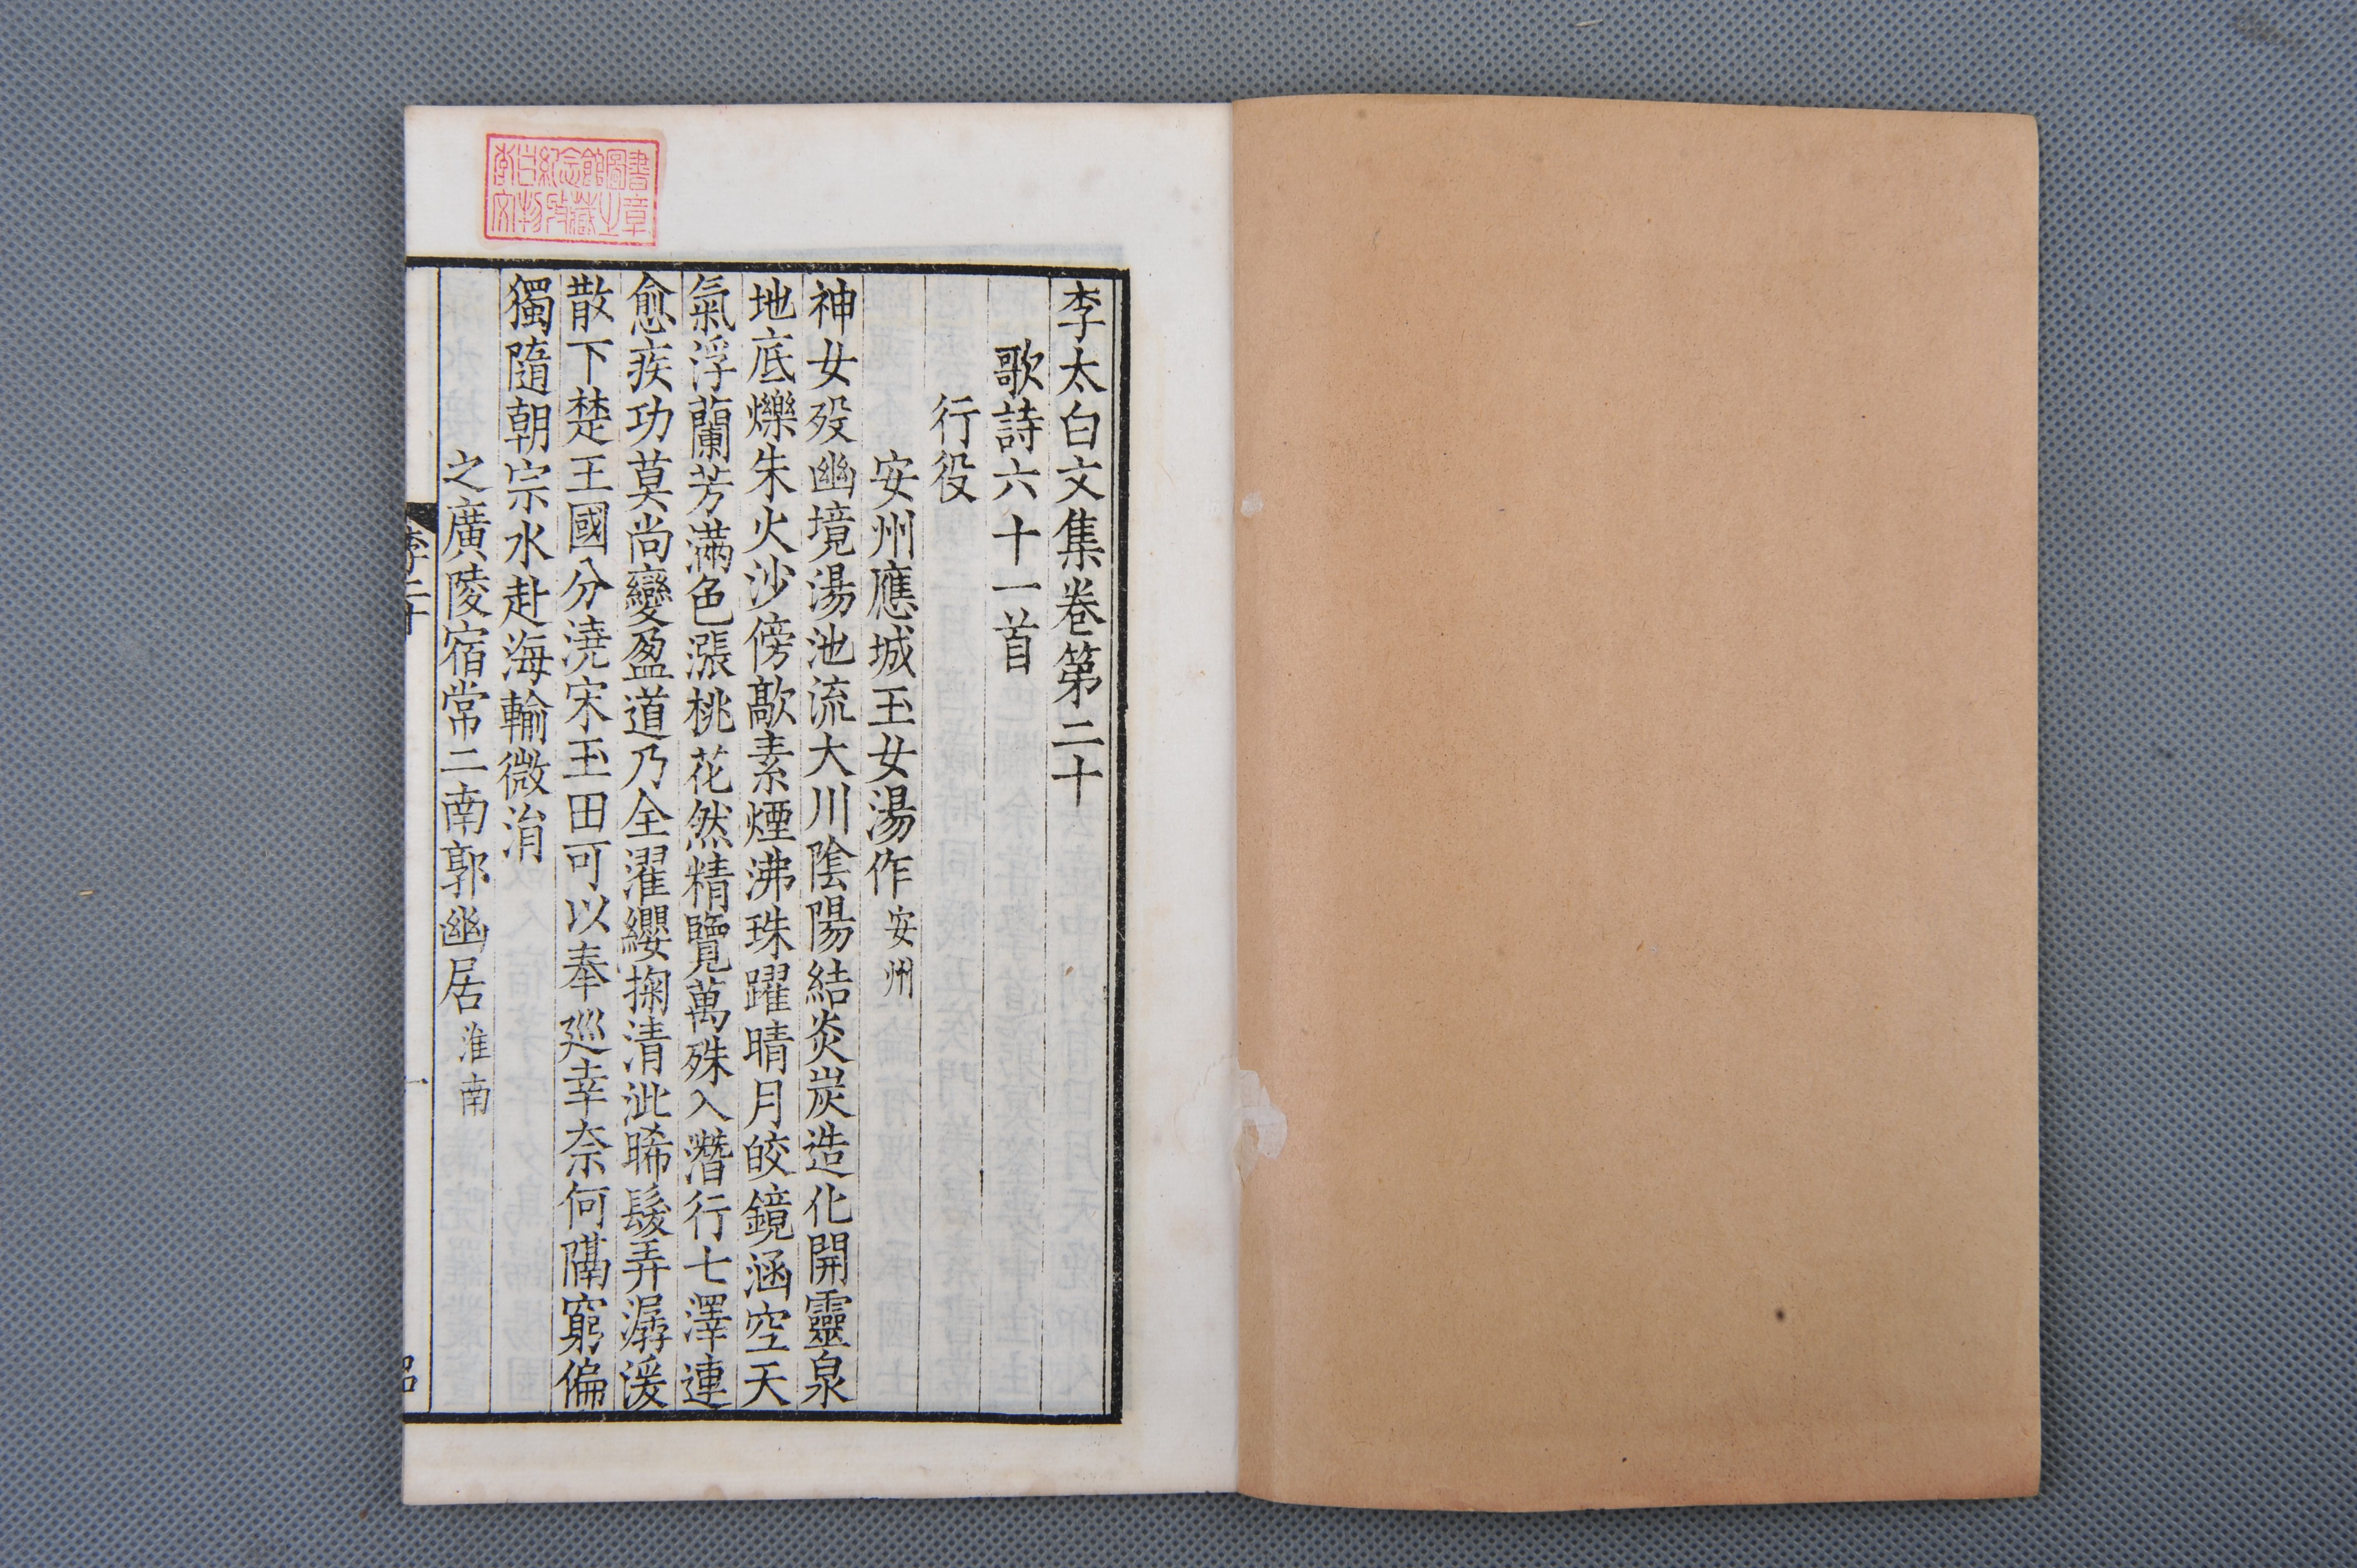 李太白文集卷第二十
歌詩六十一首
行役
安州應城玉女湯作 安州
神女殁幽境湯池流大川陰陽結炎炭造化開靈泉
地底爍朱火沙傍歊素煙沸珠躍晴月皎鏡涵空天
氣浮蘭芳滿色漲桃花然精覽萬殊入潛行七澤連
愈疾功莫尚變盈道乃全濯纓掬清泚晞髮弄潺湲
散下楚王國分澆宋玉田可以奉巡幸奈何隔窮偏
獨隨朝宗水赴海輸微涓
之廣陵宿常二南郭幽居 淮南
李二十
一
李白紀念館圖書
文物收藏之章